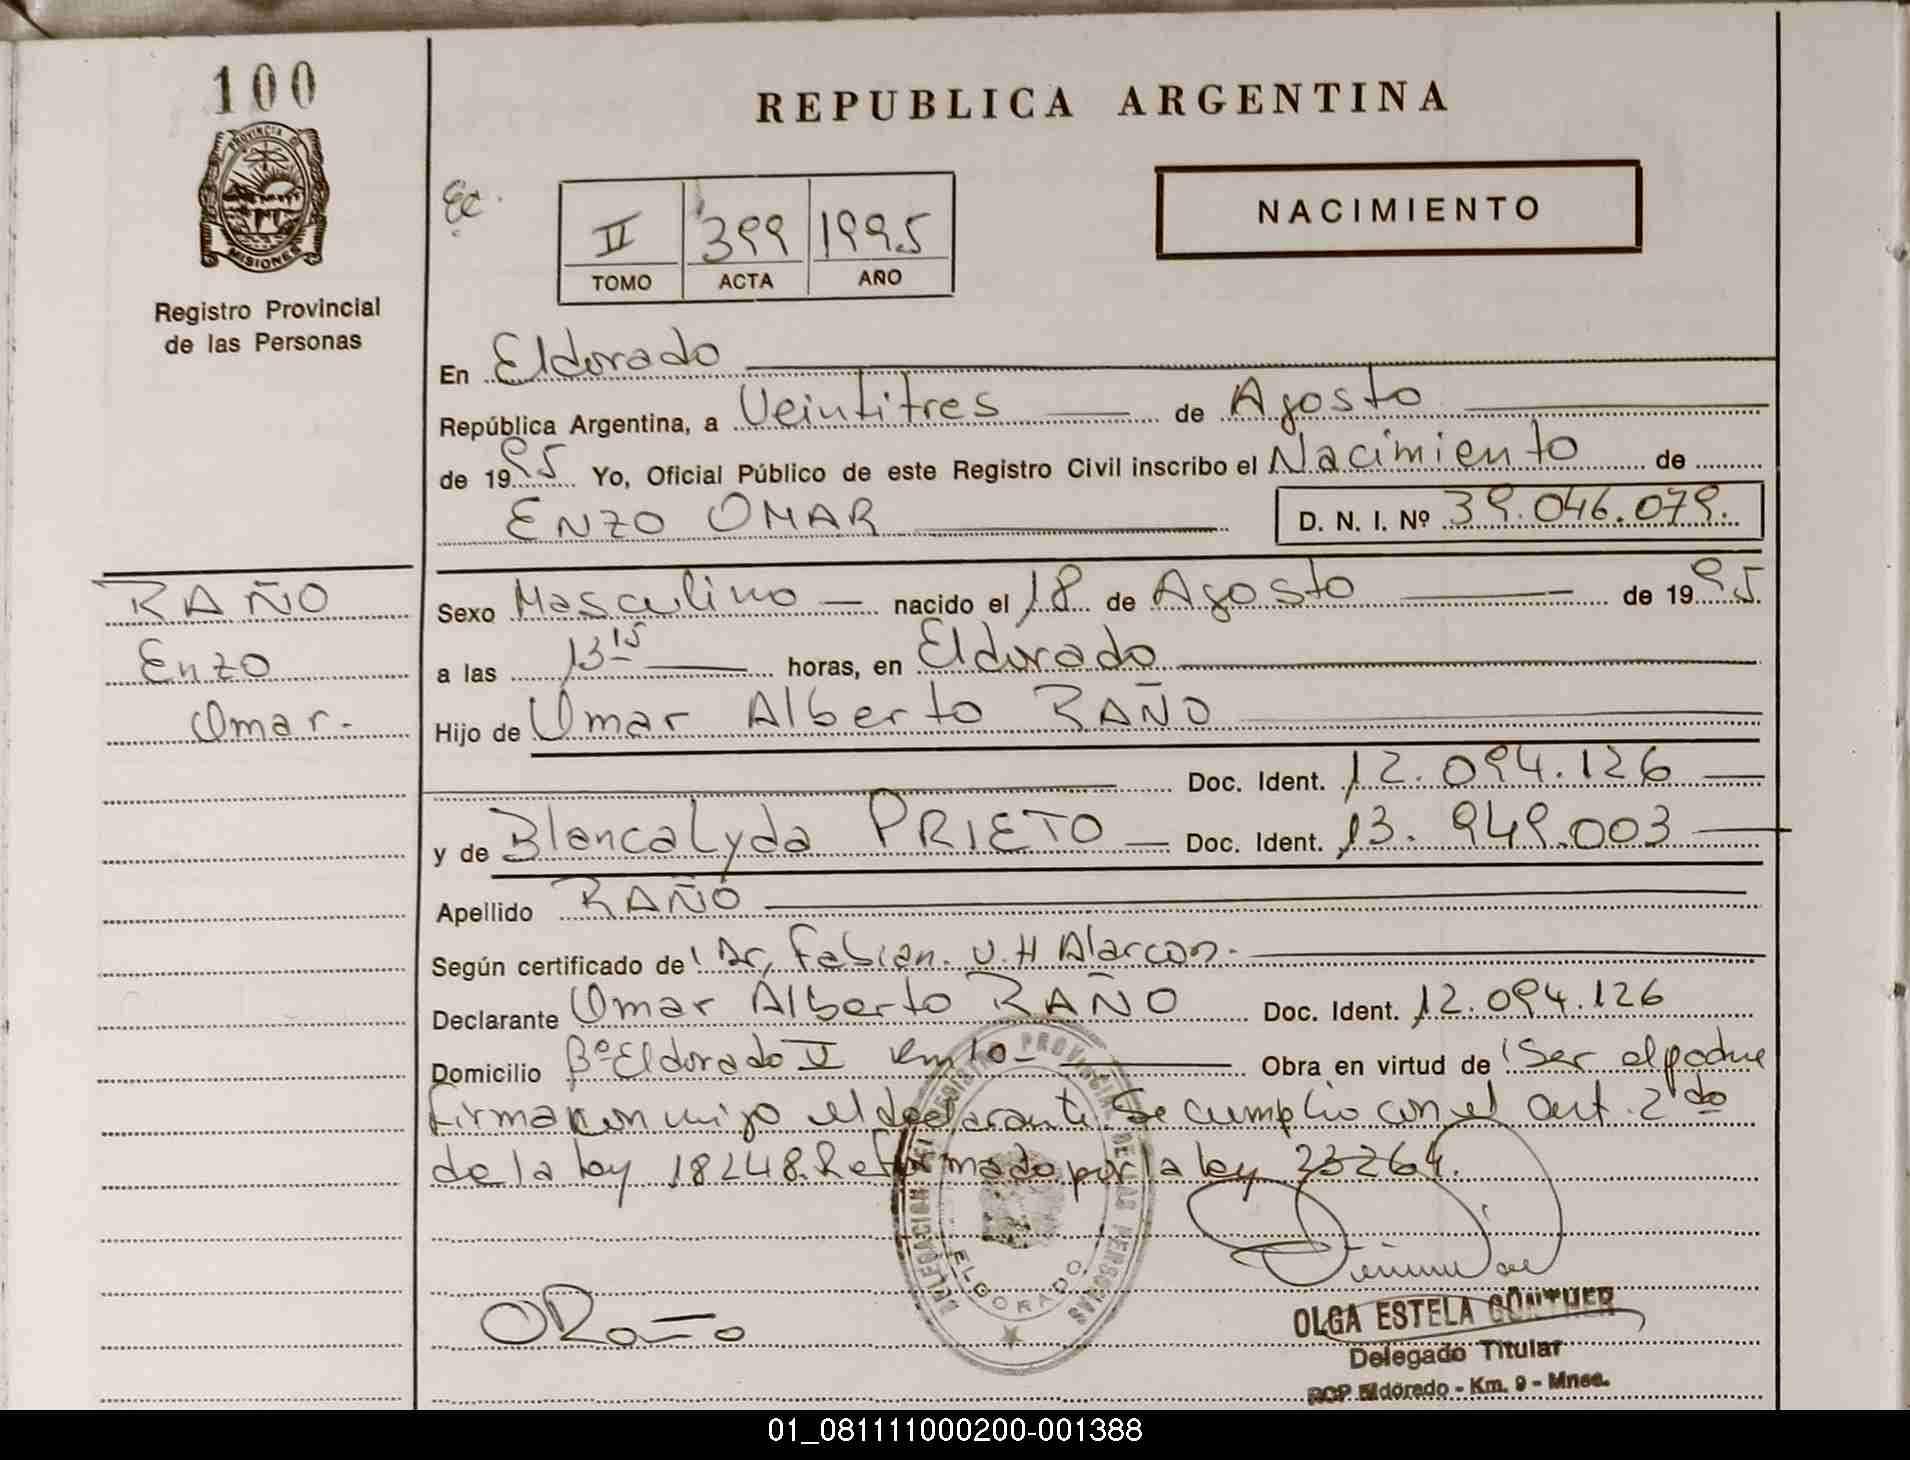 100
PROVINCIA DE
MISIONES
Registro Provincial
de las Personas
REPUBLICA ARGENTINA
NACIMIENTO
II 399 1995
TOMO ACTA AÑO
En Eldorado
República Argentina, a Veintitres de Agosto
de 1995 Yo, Oficial Público de este Registro Civil inscribo el Nacimiento de
ENZO OMAR D. N. I. Nº 39.046.079.
RAÑO
Enzo
Omar.-
Sexo Masculino nacido el 18 de Agosto de 1995.
a las 13 15 horas, en Eldorado
Hijo de Omar Alberto RAÑO
Doc. Ident. 12.094.126
y de Blanca Lyda PRIETO Doc. Ident. 13.949.003
Apellido RAÑO
Según certificado de Dr, Fabian. V.H Alarcon.-
Declarante Omar Alberto RAÑO Doc. Ident. 12.094.126
Domicilio Bº Eldorado II Km 10- Obra en virtud de Ser el padre
Firma con migo el declarante. Se cumplio con el art. 2do
de la ley 18248. Reformado por la ley 23264.
DELEGACION REGISTRO PROVINCIAL DE LAS PERSONAS
ELDORADO
ORaño
OLGA ESTELA GÜNTHER
Delegado Titular
RCP Eldorado - Km. 9 - Mnes.
01_081111000200-001388